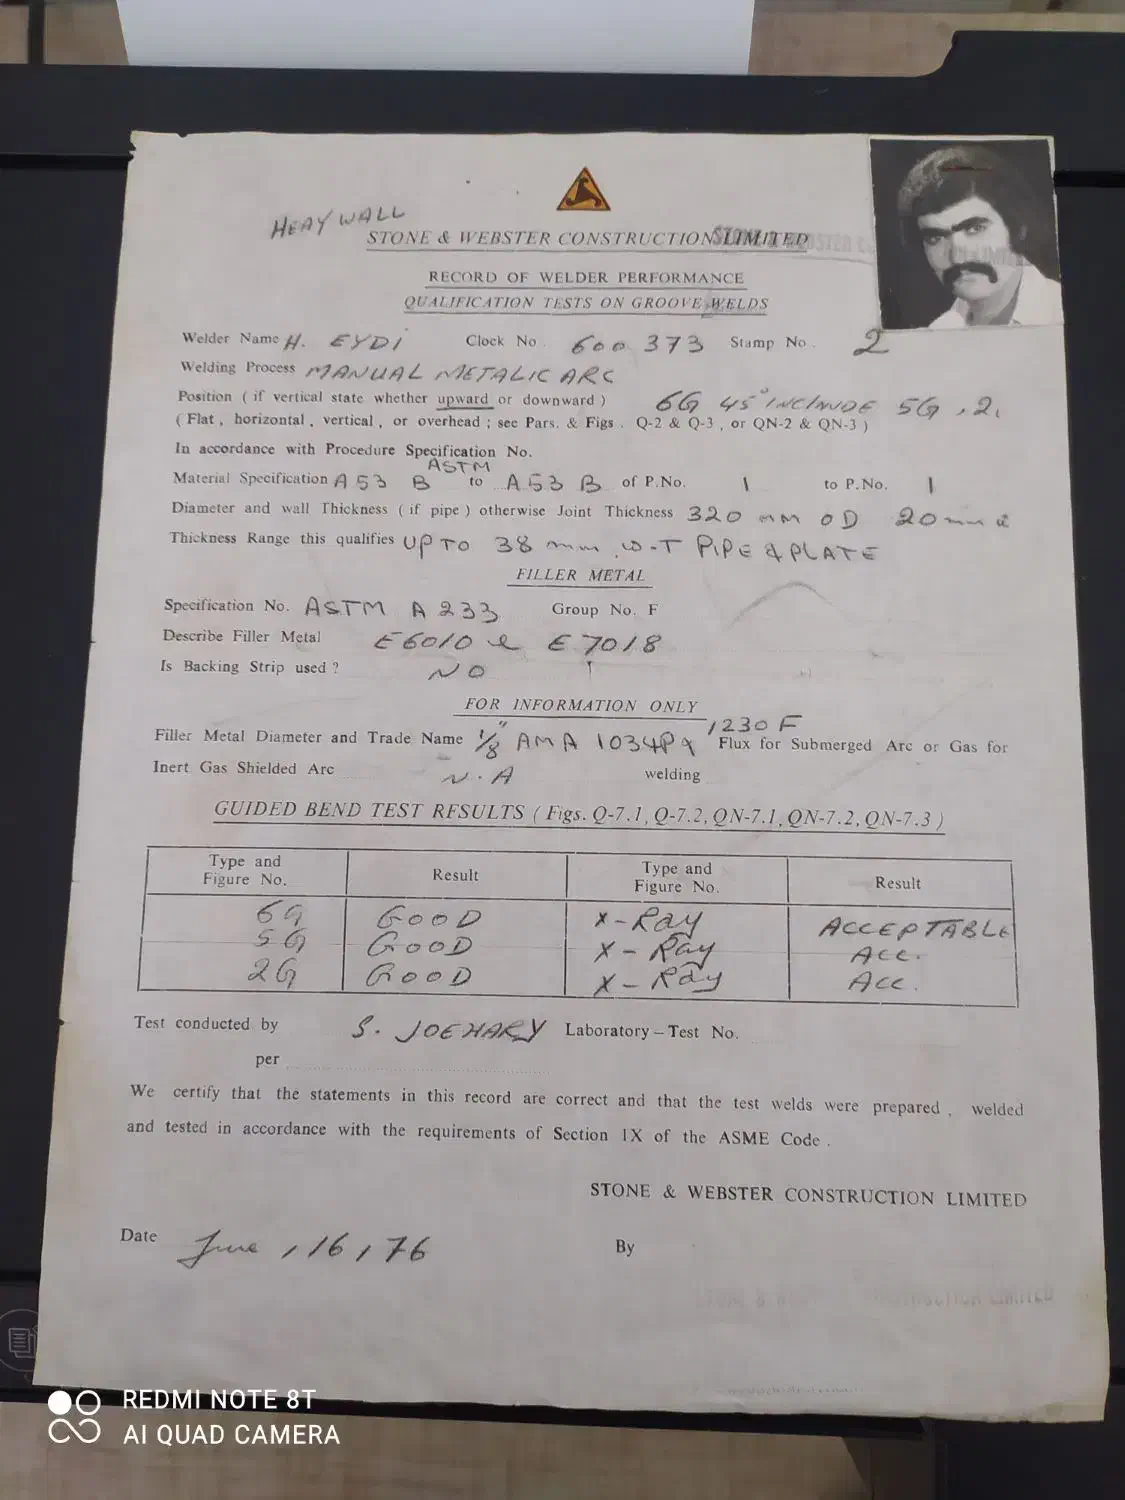 HEAYWALL
STONE & WEBSTER CONSTRUCTION LIMITED
RECORD OF WELDER PERFORMANCE
QUALIFICATION TESTS ON GROOVE WELDS
Welder Name H. EYDI Clock No. 600 373 Stamp No. 2
Welding Process MANUAL METALIC ARC
Position ( if vertical state whether upward or downward ) 6G 45° 5G , 2
( Flat, horizontal, vertical, or overhead ; see Pars. & Figs. Q-2 & Q-3, or QN-2 & QN-3 )
In accordance with Procedure Specification No.
ASTM
Material Specification A 53 B to A 53 B of P.No. 1 to P.No. 1
Diameter and wall Thickness ( if pipe ) otherwise Joint Thickness 320 mm OD 20 mm
Thickness Range this qualifies UP TO 38 mm W-T PIPE & PLATE
FILLER METAL
Specification No. ASTM A 233 Group No. F
Describe Filler Metal E6010 & E 7018
Is Backing Strip used? NO
FOR INFORMATION ONLY
1230 F
Filler Metal Diameter and Trade Name 1/8" AMA Flux for Submerged Arc or Gas for
Inert Gas Shielded Arc N.A welding
GUIDED BEND TEST RESULTS ( Figs. Q-7.1, Q-7.2, QN-7.1, QN-7.2, QN-7.3 )
Type and Figure No. Result Type and Figure No. Result
6G GOOD X-Ray ACCEPTABLE
5G GOOD X-Ray ACC.
2G GOOD X-Ray ACC.
Test conducted by S. JOEHARY Laboratory – Test No.
per
We certify that the statements in this record are correct and that the test welds were prepared, welded
and tested in accordance with the requirements of Section IX of the ASME Code.
STONE & WEBSTER CONSTRUCTION LIMITED
Date June, 16, 76 By
REDMI NOTE 8T
AI QUAD CAMERA